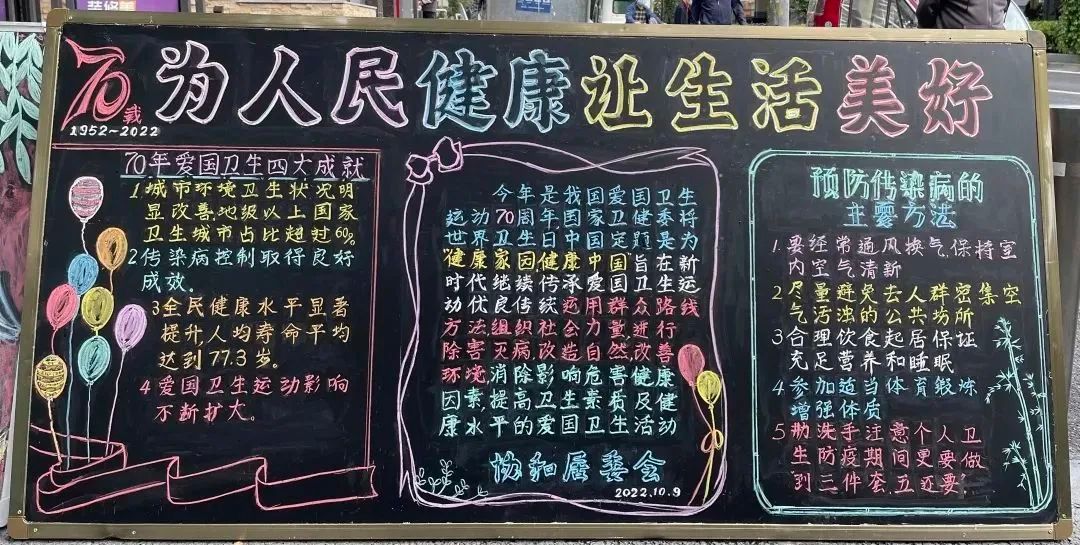 装修
70载
1952~2022
为人民健康让生活美好
70年爱国卫生四大成就
1城市环境卫生状况明
显改善,地级以上国家
卫生城市占比超过60%
2传染病控制取得良好
成效。
3全民健康水平显著
提升,人均寿命平均
达到77.3岁。
4爱国卫生运动影响
不断扩大。
今年是我国爱国卫生
运动70周年国家卫健委将
世界卫生日中国定题是为
健康家园,健康中国旨在新
时代继续传承爱国卫生运
动优良传统运用群众路线
方法组织社会力量进行
除害灭病,改造自然改善
环境,消除影响危害健康
因素,提高卫生素质及健
康水平的爱国卫生活动
协和居委会
2022.10.9
预防传染病的
主要方法
1.要经常通风换气,保持室
内空气清新
2尽量避免去人群密集空
气污浊的公共场所
3合理饮食起居保证
充足营养和睡眠
4参加适当体育锻炼
增强体质
5勤洗手注意个人卫
生防疫期间更要做
到三件套,五还要